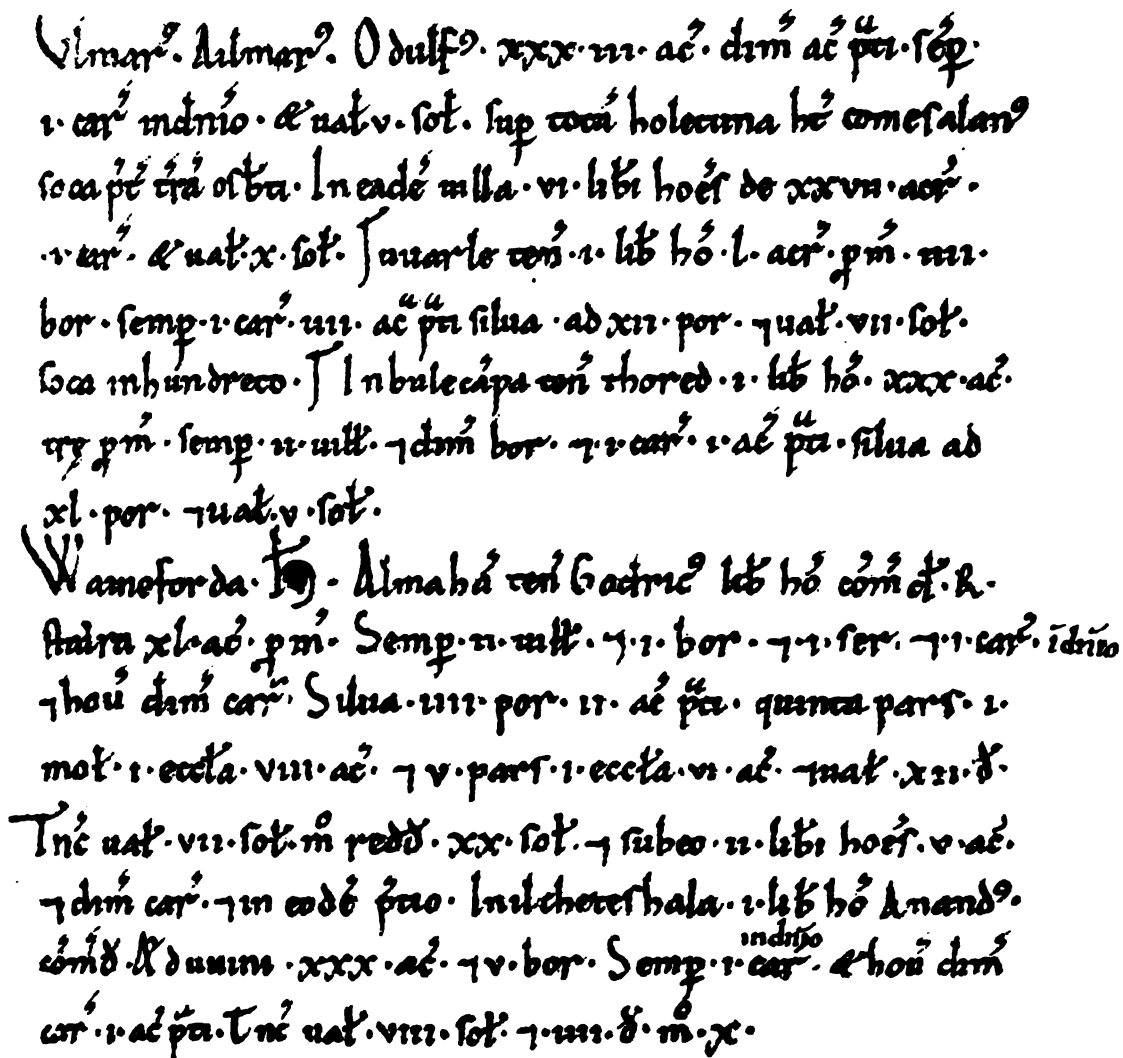 Vlmarꝰ. Ailmarꝰ. Odulfꝰ. xxx·iii· ac̄. dim̄ ac̄ p̄ti. sēp̱.
i. car̄ indn̄io. & ual̄ v. sol̄. sup̱ totā holetuna ht̄ comes alanꝰ
soca p̄t̄ t̄rā osb̄ti. In eadē uilla. vi. lib̄i hoēs de xxvii. acr̄.
.i. car̄. & ual̄. x. sol̄. Inuarle ten̄. i. lib̄ hō. l. acr̄. ꝓ m̄. iiii.
bor. semp̱. i. car̄. iiii. ac̄ p̄ti silua. ad xii. por. ⁊ ual̄. vii. sol̄.
soca inhundreto. In bulecāpa ten̄ thored. i. lib̄ hō. xxx. ac̄.
trę ꝓ m̄. semp̱. ii. uill̄. ⁊ dim̄ bor. ⁊. i. car̄. i. ac̄ p̄ti. silua ad
xl. por. ⁊ ual̄. v. sol̄.
Waineforda. H̄. Almahā ten̄ Godricꝰ lib̄ hō com̄d̄. R.
xl. ac̄. ꝓ m̄. Semp̱. ii. uill̄. ⁊. i. bor. ⁊. i. ser. ⁊. i. car̄. ī dn̄io
⁊ hoū dim̄ car̄. Silua. iiii. por. ii. ac̄ p̄ti. quinta pars. i.
mol̄. i. eccl̄a. viii. ac̄. ⁊ v. pars. i. eccl̄a. vi. ac̄. ⁊ ual̄. xii. đ.
Tn̄c ual̄. vii. sol̄. m̊ redđ. xx. sol̄. ⁊ sub eo. ii. lib̄i hoēs. v. ac̄.
⁊ dim̄ car̄. ⁊ in eodē p̄tio. In ilcheteshala. i. lib̄ hō Anandꝰ.
com̄đ. Æduuini. xxx. ac̄. ⁊ v. bor. Semp̱. i. car̄ indn̄io. & hoū dim̄
car̄. i. ac̄ p̄ti. Tn̄c ual̄. viii. sol̄. ⁊. iiii. đ. m̊. x.